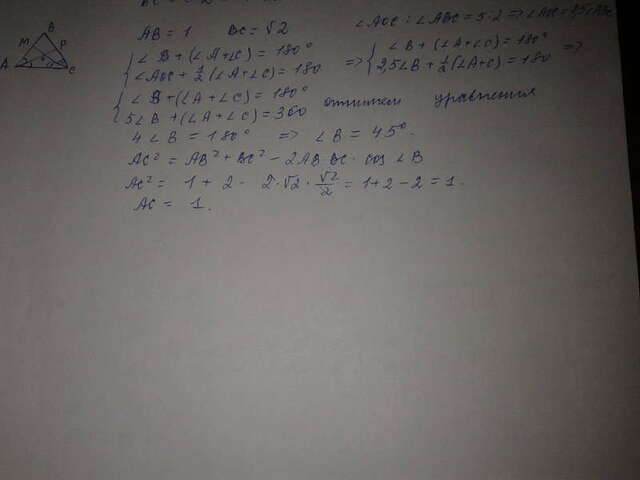 AB = 1 BC = √2 ∠AOC : ∠ABC = 5 : 2 =>
B
M P
A O C
{ ∠B + (∠A + ∠C) = 180° => { ∠B + (∠A + ∠C) = 180° =>
{ ∠AOC + 1/2 (∠A + ∠C) = 180 { 2,5∠B + 1/2 (∠A + ∠C) = 180
{ ∠B + (∠A + ∠C) = 180°
{ 5∠B + (∠A + ∠C) = 360 отнимем уравнения
4∠B = 180° => ∠B = 45°.
AC² = AB² + BC² - 2AB·BC·cos ∠B
AC² = 1 + 2 - 2·√2·√2/2 = 1+2-2 = 1.
AC = 1.